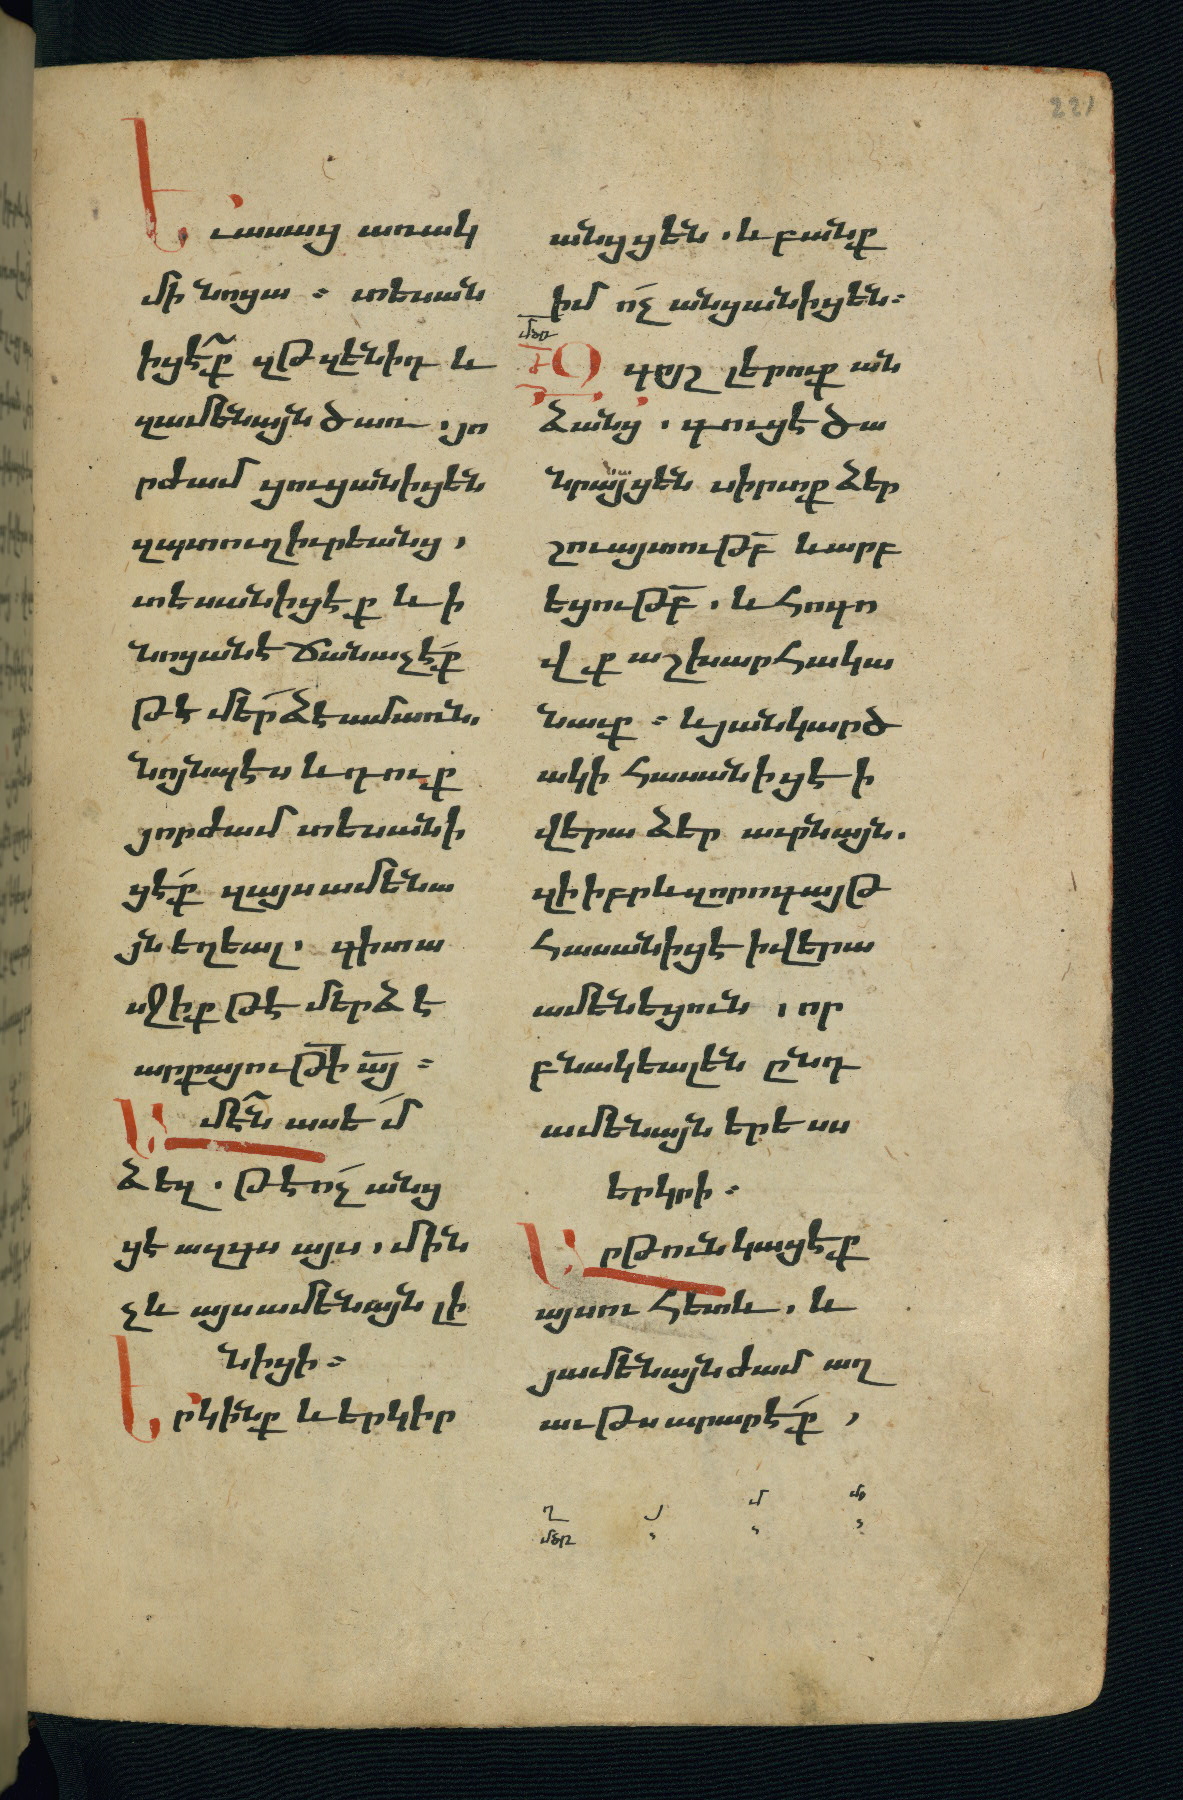 221
Ե ւասաց առակ
մի նոցա ։ տեսան
իցէ՞ք զԹզէնիդ և
զամենայն ծառ . յո
րժամ ցուցանիցեն
զպտուղիւրեանց ,
տեսանիցէք և ի
նոցանէ ճանաչէ՛ք
թէ մերձ է ամառն .
նոյնպէս և դուք
յորժամ տեսանի
ցէ՛ք զայս ամենա
յն եղեալ . գիտա
սջիք թէ մերձ է
արքայուԹի այ ։
Ա մէ՞ն ասեմ
ձեզ . թէ ոչ անց
ցէ ազգս այս , մին
չև այս ամենայն լի
նիցի ։
Ե րկինք և երկիր
անցցեն . և բանք
իմ ոչ անցանիցեն ։
մծռ
Զ գոյշ լերուք ան
ձանց . գուցէ ծա
նրայցեն սիրտք ձեր
շուայտուԹբ և արբ
եցուԹբ . և հոգո
վք աշխարհակա
նաւք ։ և յանկարծ
ակի հասանիցէ ի
վերա ձեր աւրնայն .
զի իբրև զորոգայԹ
հասանիցէ ի վերա
ամենեցուն , որ
բնակեալ են ընդ
ամենայն երեսս
երկրի ։
Ա րԹուն կացէք
այսու հետև . և
յամենայն ժամ աղ
աւԹս արարէ՛ք ,